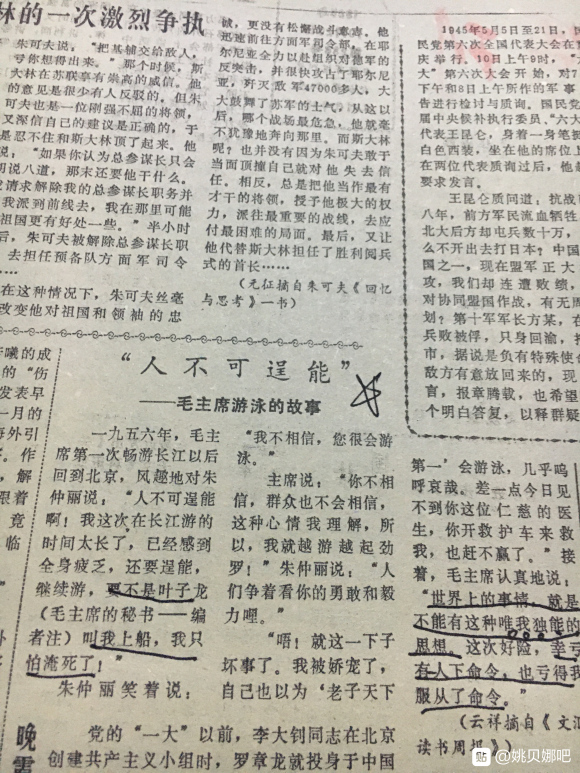 林的一次激烈争执
朱可夫说："把基辅交给敌人，
亏你想得出来。"那个时候，斯
大林在苏联享有崇高的威信。他
的意见是很少有人反驳的。但朱
可夫也是一位刚强不屈的将领，
又深信自己的建议是正确的，于
是忍不住和斯大林顶了起来。他
说，"如果你认为总参谋长只会
胡说八道，那末还要他干什么。
请求解除我的总参谋长职务并
我派到前线去，我在那里可能
祖国更有好处一些。"半小时
后，朱可夫被解除总参谋长职
去担任预备队方面军司令
……
在这种情况下，朱可夫丝毫
改变他对祖国和领袖的忠
诚，更没有松懈战斗意志。他
迅速前往方面军司令部。在耶
尔尼亚全力以赴组织对德军的
反突击，并很快攻占了耶尔尼
亚，歼灭敌军47000多人，大
大鼓舞了苏军的士气。从这以
后，哪个战场最危急，他就毫
不犹豫地奔向那里。而斯大林
呢？也并没有因为朱可夫敢于
当面顶撞自己就对他失去信
任。相反，总是把他当作最有
才干的将领，授予他极大的权
力，派往最重要的战线，去应
付最困难的局面。最后，又让
他代替斯大林担任了胜利阅兵
式的首长……
（允征摘自朱可夫《回忆
与思考》一书）
1945年5月5日至21日，
民党第六次全国代表大会在
庆举行。10日上午9时，"
大"第六次大会开始，对7
下午和8日上午所作的军事
告进行检讨与质询。国民党
届中央候补执行委员、"六大
代表王昆仑，身着一身笔挺
白色西装，坐在他的席位上
在两位代表质询过后，他起
要求发言。
王昆仑质问道：抗战
八年，前方军民流血牺牲
北大后方却屯兵数十万，
么不开出去打日本？中国
国之一，现在盟军正大
攻，我们却连遭败绩，
对协同盟国作战，有无
划？第十军军长方某，在
兵败被俘，只身回渝，
市，据说是负有特殊使
敌方有意放回来的，现
言，报章腾载，也希望
个明白答复，以释群疑
"人不可逞能"
——毛主席游泳的故事
一九五六年，毛主
席第一次畅游长江以后
回到北京，风趣地对朱
仲丽说："人不可逞能
啊！我这次在长江游的
时间太长了，已经感到
全身疲乏，还要逞能，
继续游，要不是叶子龙
（毛主席的秘书——编
者注）叫我上船，我只
怕淹死了！"
朱仲丽笑着说：
"我不相信，您很会游
泳。"
主席说："你不相
信，群众也不会相信，
这种心情我理解，所
以，我就越游越起劲
罗！"朱仲丽说："人
们争着看你的勇敢和毅
力哩。"
"唔！就这一下子
坏事了。我被娇宠了，
自己也以为'老子天下
第一'会游泳，几乎呜
呼哀哉。差一点今日见
不到你这位仁慈的医
生，你开救护车来救
我，也赶不赢了。"接
着，毛主席认真地说：
"世界上的事情，就是
不能有这种唯我独能的
思想。这次好险，幸亏
有人下命令，也亏得我
服从了命令。"
（云祥摘自《文汇
读书周报》）
曦的成
的"伤
发表早
一月的
海外引
作
解
跟着
竟
临
晚
党的"一大"以前，李大钊同志在北京
创建共产主义小组时，罗章龙就投身于中国
贴 @姚贝娜吧